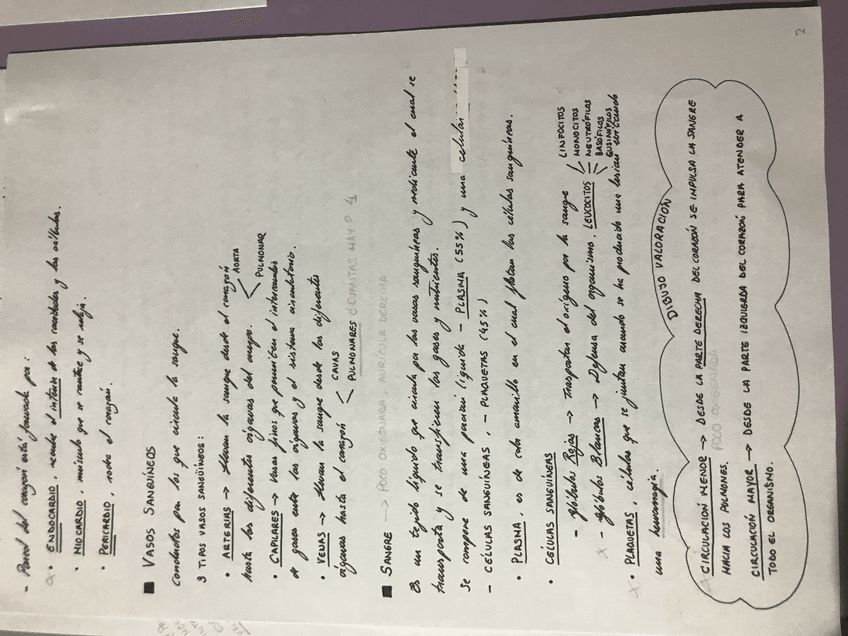 2
- Pared del corazón está formada por:
• ENDOCARDIO, recubre el interior de las cavidades y las válvulas.
• MIOCARDIO, músculo que se contrae y se relaja.
• PERICARDIO, rodea el corazón.
■ VASOS SANGUÍNEOS
Conductos por los que circula la sangre.
3 TIPOS VASOS SANGUÍNEOS:
• ARTERIAS → llevan la sangre desde el corazón
hasta los diferentes órganos del cuerpo. < AORTA
PULMONAR
• CAPILARES → Vasos finos que permiten el intercambio
de gases entre los órganos y el sistema circulatorio.
• VENAS → llevan la sangre desde los diferentes
órganos hasta el corazón < CAVAS
PULMONARES CUANTAS HAY? 4
■ SANGRE → POCO OXIGENADA, AURÍCULA DERECHA
Es un tejido líquido que circula por los vasos sanguíneos y mediante el cual se
transporta y se transfieren los gases y nutrientes.
Se compone de una porción líquida - PLASMA (55%) y una celular
- CÉLULAS SANGUÍNEAS, - PLAQUETAS (45%)
• PLASMA, es de color amarillo en el cual flotan las células sanguíneas.
• CÉLULAS SANGUÍNEAS
- glóbulos Rojos → Trasportan el oxígeno por la sangre
- glóbulos Blancos → Defensa del organismo. LEUCOCITOS
LINFOCITOS
MONOCITOS
NEUTRÓFILOS
BASÓFILOS
EOSINÓFILOS
• PLAQUETAS, células que se juntan cuando se ha producido una lesión evitando
una hemorragia.
DIBUJO VALORACIÓN
CIRCULACIÓN MENOR → DESDE LA PARTE DERECHA DEL CORAZÓN SE INPULSA LA SANGRE
HACIA LOS PULMONES. POCO OXIGENADA
CIRCULACIÓN MAYOR → DESDE LA PARTE IZQUIERDA DEL CORAZÓN PARA ATENDER A
TODO EL ORGANISMO.